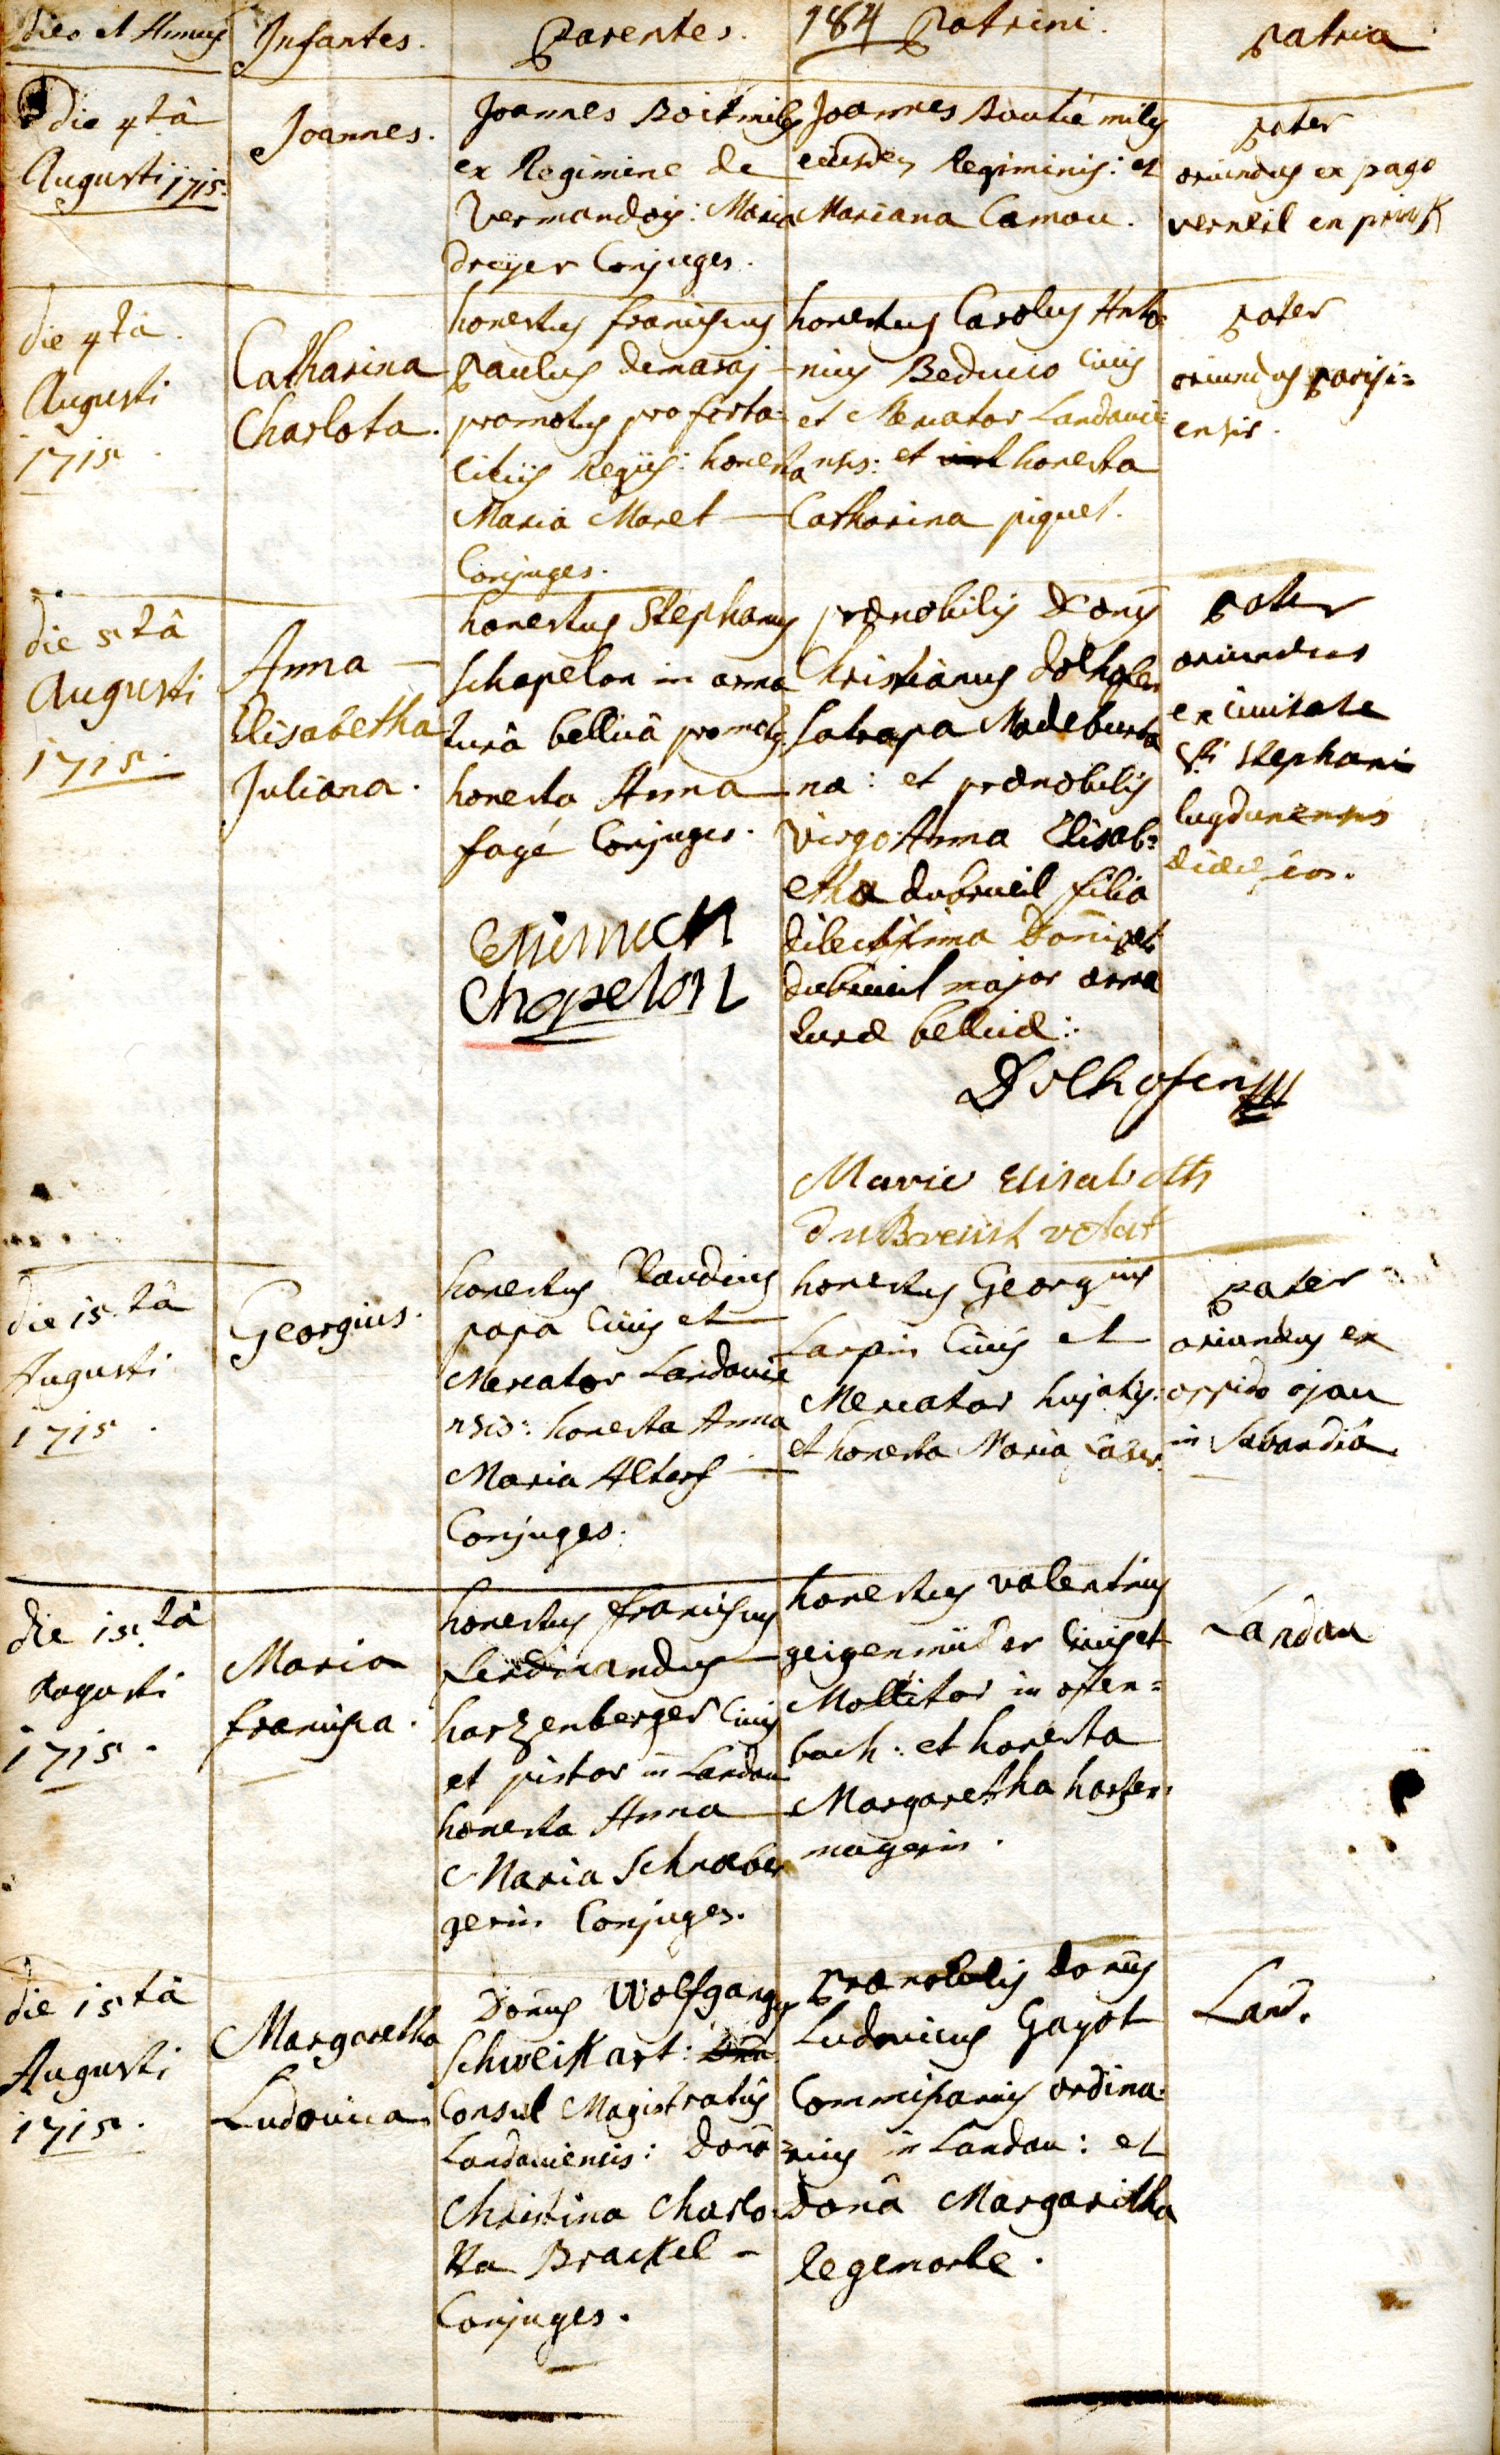 dies et Annus
Infantes.
parentes.
184 patrini.
patria
die 4tâ
Augusti 1715.
Joannes.
Joannes Boit miles
ex Regimine de
Vermandois: Maria
dreyer Conjuges.
Joannes Boutié miles
eiusdem Regiminis: et
Mariana Camou.
pater
oriundus ex pago
verneil en
die 4tâ.
Augusti
1715.
Catharina
Charlota.
honestus franciscus
paulus demaraj
promotus pro forta=
litiis Regiis: honesta
Maria Maret
Conjuges.
honestus Carolus Anto=
nius Beduio Civis
et Mercator Landavie=
nsis: et honesta
Catharina piquet.
pater
oriundus parisi=
ensis.
die 5tâ
Augusti
1715.
Anna
Elisabetha
Juliana.
honestus Stephanus
Schapelon in arma
turâ bellicâ promotus
honesta Anna
fagé Conjuges.
Chapelon
prænobilis Dnus
Christianus dolhofen
Satrapa Madeburta
næ: et prænobilis
virgo Anna Elisab=
etha dubrueil filia
dilectissima Domini
dubrueil major arma
turæ bellicæ:
Dolhofen
Marie Elisabeth
du Breuil
pater
oriundus
ex civitate
Sti Stephani
lugdunensis
diœcesios.
die 15.tâ
Augusti
1715.
Georgius.
honestus Claudius
papa Civis et
Mercator Landavie
nsis: honesta Anna
Maria Altorf
Conjuges.
honestus Georgius
Larpin Civis et
Mercator hujatis:
et honesta Maria
pater
oriundus ex
oppido ojau
in Sabaudiâ
die 15.tâ
Augusti
1715.
Maria
francisca.
honestus franciscus
ferdinandus
harzenberger Civis
et pistor in Landau
honesta Anna
Maria Schnæber
gerin Conjuges.
honestus valentinus
geigenmüller Civis et
Mollitor in offen=
bach: et honesta
Margaretha harzen=
magerin.
Landau
die 15tâ
Augusti
1715.
Margaretha
Ludovica
Donus Wolfgangus
Schweikart:
Consul Magistratûs
Landaviensis: Dona
Christina Charlo=
tta Brackel
Conjuges.
prænobilis Donus
Ludovicus Gayot
Commissarius ordina=
rius in Landau: et
Dona Margaritha
legenorle.
Land.